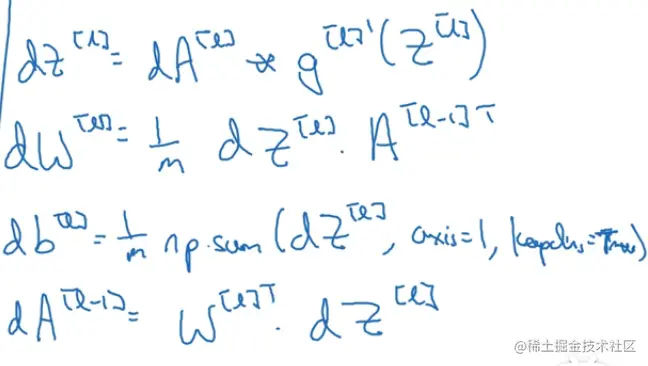 dZ^[l] = dA^[l] * g^[l]'(Z^[l])
dW^[l] = 1/m dZ^[l] · A^[l-1]T
db^[l] = 1/m np.sum(dZ^[l], axis=1, keepdims=True)
dA^[l-1] = W^[l]T · dZ^[l]
@稀土掘金技术社区